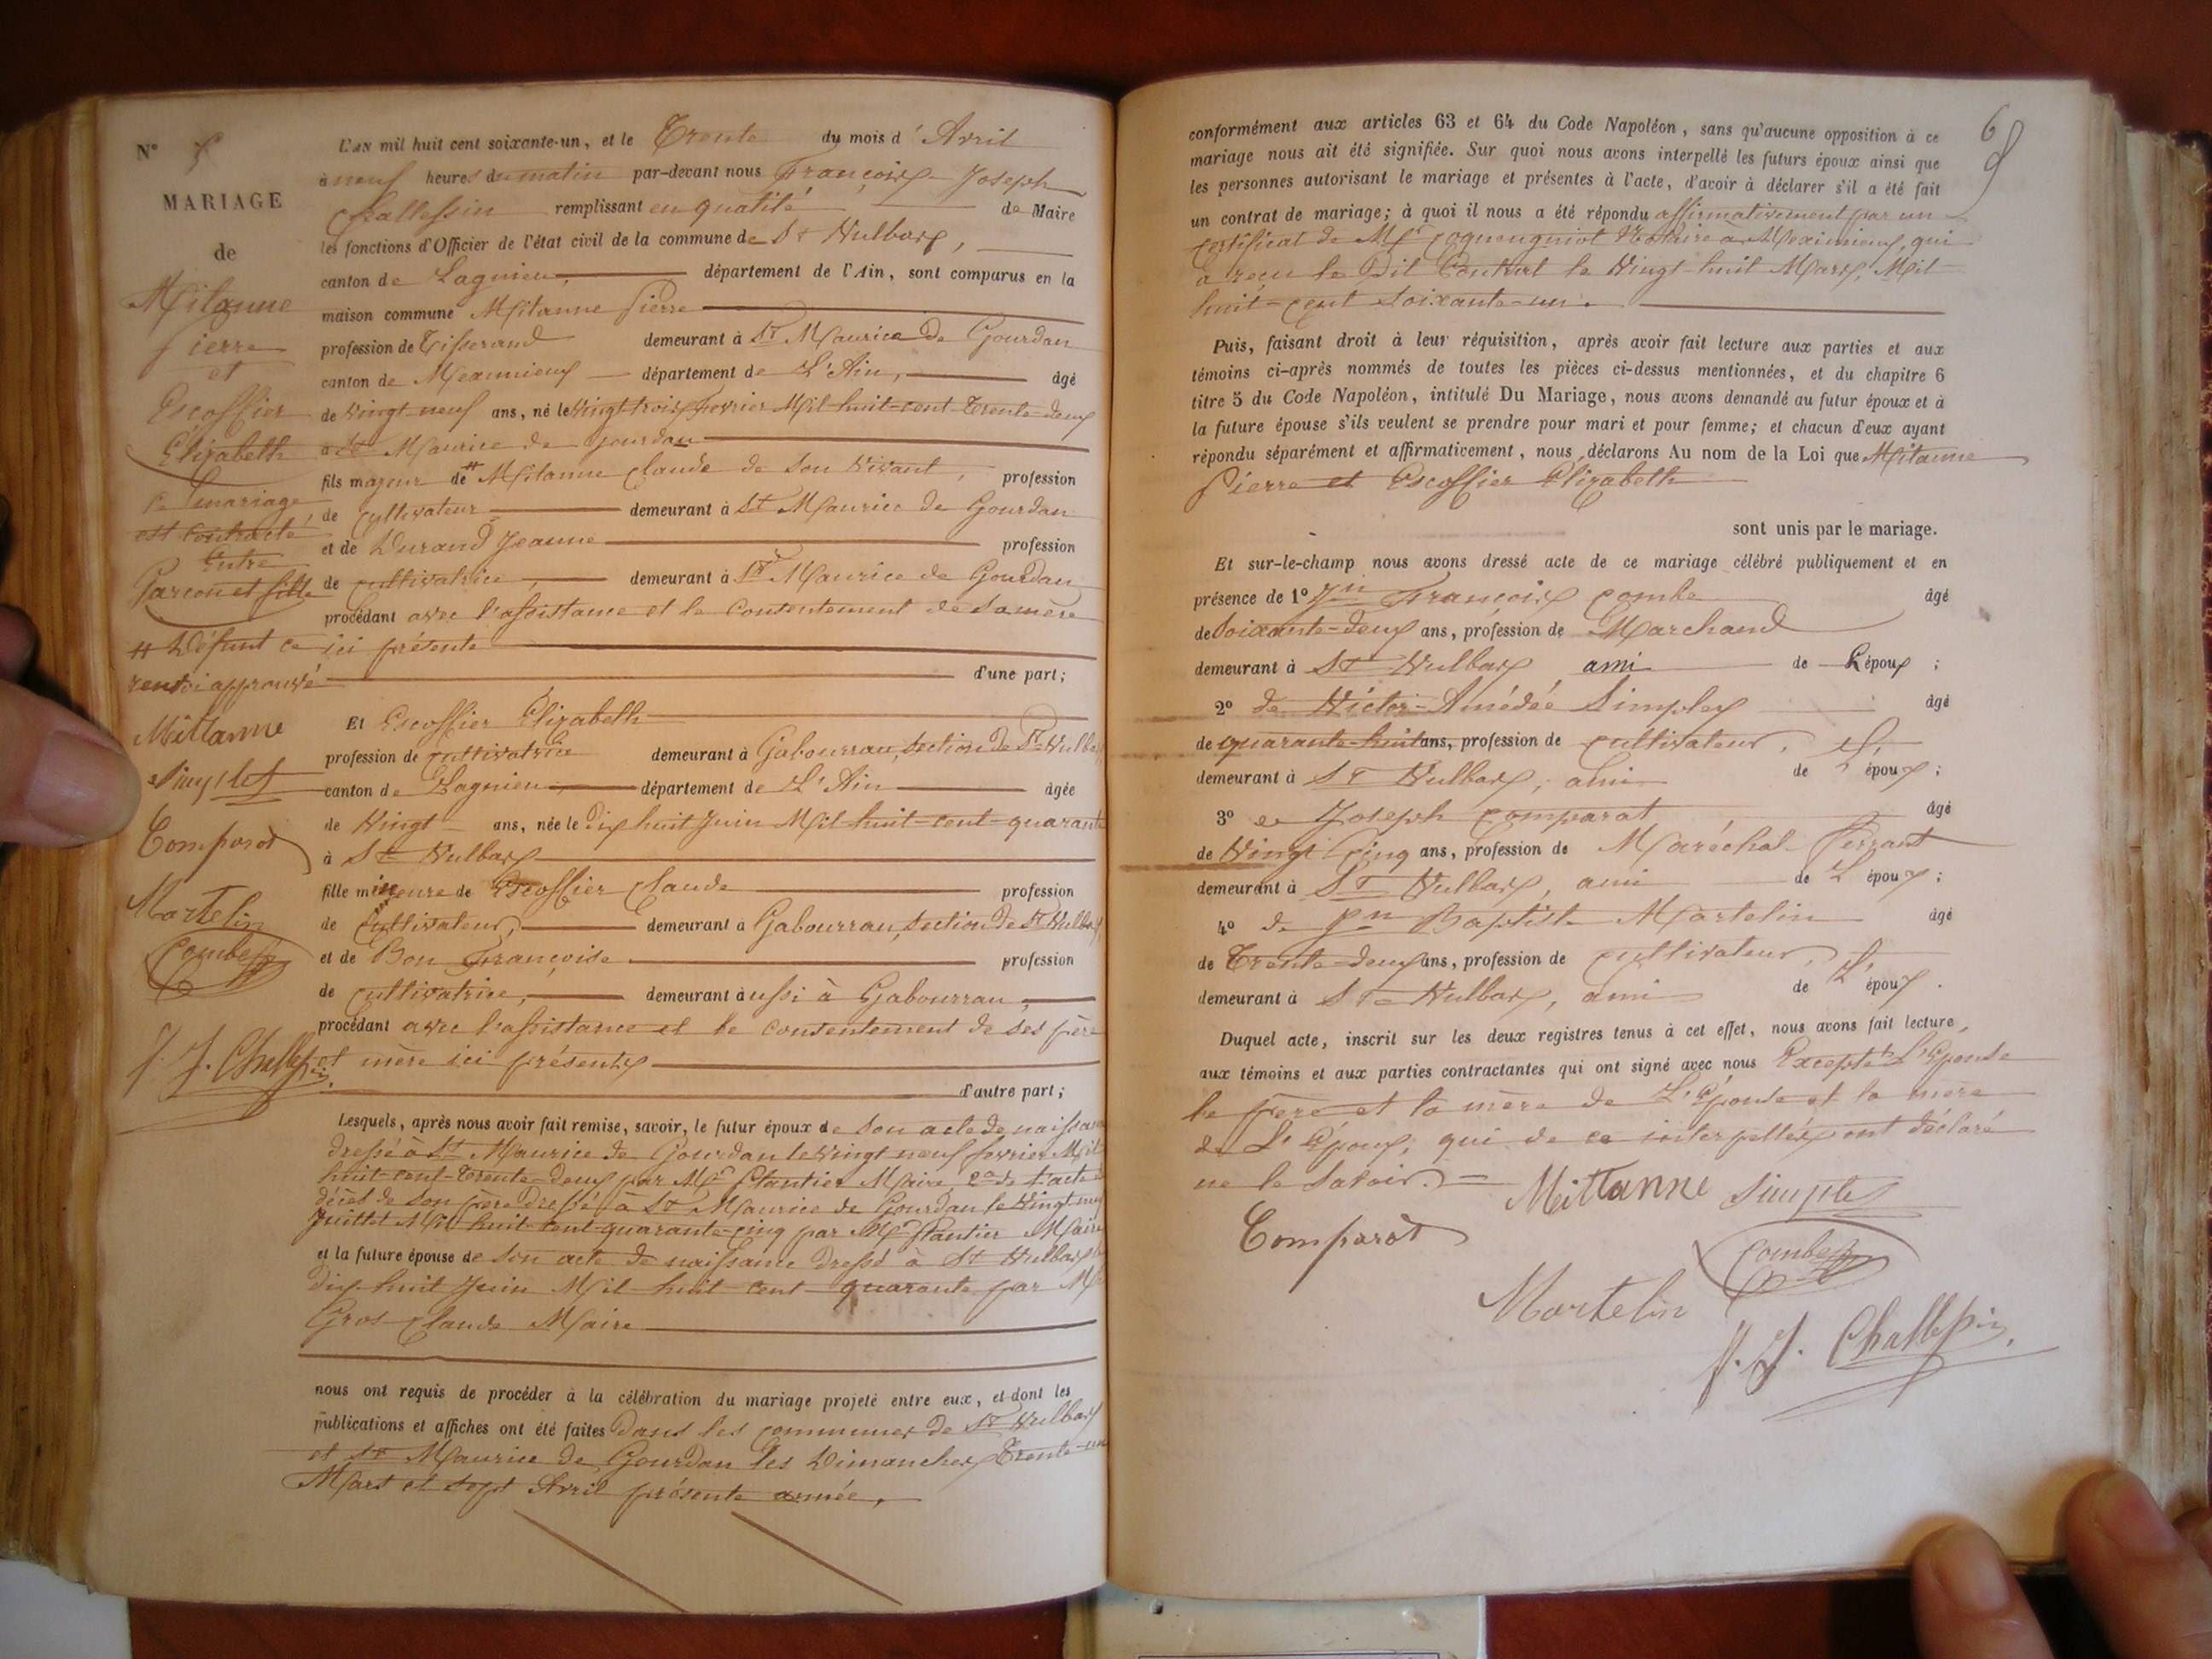 N°
MARIAGE
de
Mitanne
Pierre
et
Escoffier
Elizabeth
ce mariage
est contracté
Entre
Garcon et fille
# Défunt ce
renvoi approuvé
Mittanne
Simplex
Comparat
Martelin
Combe
F. J. Challessin
L'AN mil huit cent soixante-un, et le Trente du mois d'Avril
à neuf heures du matin par-devant nous François Joseph
Challessin remplissant en qualité de Maire
les fonctions d'Officier de l'état civil de la commune de St Vulbas,
canton de Lagnieu, département de l'Ain, sont comparus en la
maison commune Mitanne Pierre
profession de Tisserand demeurant à St Maurice de Gourdan
canton de Meximieux département de L'Ain, âgé
de vingt neuf ans, né le vingt trois fevrier Mil huit cent Trente deux
à St Maurice de Gourdan
fils majeur de # Mitanne Claude de son vivant, profession
de cultivateur demeurant à St Maurice de Gourdan
et de Durand Jeanne profession
de cultivatrice, demeurant à St Maurice de Gourdan
procédant avec l'assistance et le consentement de sa mère
ici présente
d'une part;
Et Escoffier Elizabeth
profession de cultivatrice demeurant à Gabourrau, section de St Vulbas
canton de Lagnieu département de L'Ain âgée
de Vingt ans, née le dix huit Juin Mil huit cent quarante
à St Vulbas
fille mineure de Escoffier Claude profession
de cultivateur, demeurant à Gabourrau, section de St Vulbas,
et de Bon Françoise profession
de cultivatrice, demeurant aussi à Gabourrau,
procédant avec l'assistance et le consentement de ses père
et mère ici présents
d'autre part;
Lesquels, après nous avoir fait remise, savoir, le futur époux de son acte de naissance
dressé à St Maurice de Gourdan le vingt neuf fevrier Mil
huit cent Trente deux par Mr Plantier Maire 2° de l'acte de
décès de son père dressé à St Maurice de Gourdan le vingt neuf
Juillet Mil huit cent quarante cinq par Mr Plantier Maire
et la future épouse de son acte de naissance dressé à St Vulbas le
dix huit Juin Mil huit cent quarante par Mr
Gros Claude Maire
nous ont requis de procéder à la célébration du mariage projeté entre eux, et dont les
publications et affiches ont été faites dans les communes de St Vulbas
et St Maurice de Gourdan les Dimanches Trente un
Mars et sept Avril présente année,
conformément aux articles 63 et 64 du Code Napoléon, sans qu'aucune opposition à ce
mariage nous ait été signifiée. Sur quoi nous avons interpellé les futurs époux ainsi que
les personnes autorisant le mariage et présentes à l'acte, d'avoir à déclarer s'il a été fait
un contrat de mariage; à quoi il nous a été répondu affirmativement par un
certificat de Mr Coqueugniot Notaire à Meximieux, qui
a reçu le Dit Contrat le Vingt huit Mars, Mil
huit cent soixante-un.
Puis, faisant droit à leur réquisition, après avoir fait lecture aux parties et aux
témoins ci-après nommés de toutes les pièces ci-dessus mentionnées, et du chapitre 6
titre 5 du Code Napoléon, intitulé Du Mariage, nous avons demandé au futur époux et à
la future épouse s'ils veulent se prendre pour mari et pour femme; et chacun d'eux ayant
répondu séparément et affirmativement, nous déclarons Au nom de la Loi que Mitanne
Pierre et Escoffier Elizabeth
sont unis par le mariage.
Et sur-le-champ nous avons dressé acte de ce mariage célébré publiquement et en
présence de 1° Jn François Combe âgé
de soixante-deux ans, profession de Marchand
demeurant à St Vulbas ami de L'époux;
2° de Victor-Amédée Simplex âgé
de quarante-huit ans, profession de cultivateur,
demeurant à St Vulbas, ami de L'époux;
3° de Joseph Comparat âgé
de Vingt Cinq ans, profession de Maréchal Ferrant
demeurant à St Vulbas, ami de L'époux;
4° de Jn Baptiste Martelin âgé
de Trente-deux ans, profession de cultivateur,
demeurant à St Vulbas, ami de L'époux.
Duquel acte, inscrit sur les deux registres tenus à cet effet, nous avons fait lecture
aux témoins et aux parties contractantes qui ont signé avec nous Excepté L'Epouse
le père et la mère de L'Epouse et la mère
de L'Epoux, qui de ce interpellés ont déclaré
ne le savoir.
Mittanne Simplex
Comparat
Combe
Martelin
F. J. Challessin